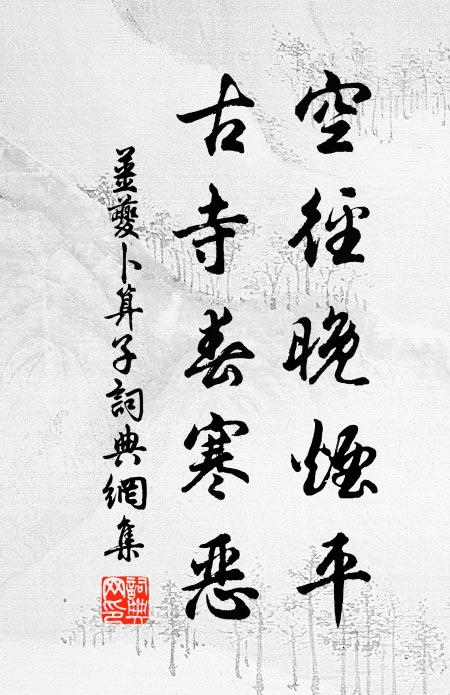 空徑晚煙平
古寺春寒惡
姜夔卜算子詞典網集